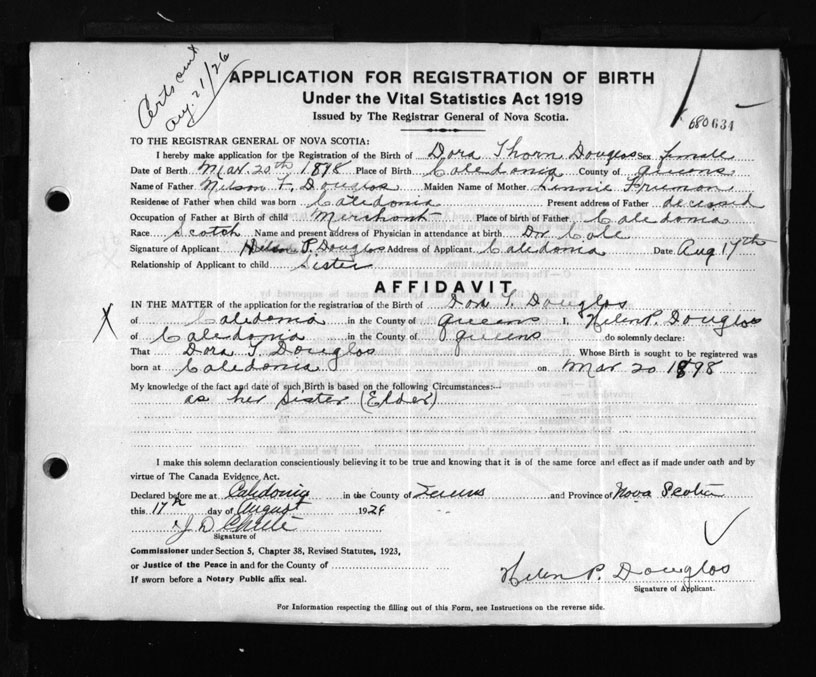 Certs out
Aug. 21/26
APPLICATION FOR REGISTRATION OF BIRTH
Under the Vital Statistics Act 1919
Issued by The Registrar General of Nova Scotia.
680634
TO THE REGISTRAR GENERAL OF NOVA SCOTIA:
I hereby make application for the Registration of the Birth of Dora Thorn Douglas Sex female
Date of Birth Mar. 20th, 1898 Place of Birth Caledonia County of Queens
Name of Father Nelson F. Douglas Maiden Name of Mother Linnie Freeman
Residence of Father when child was born Caledonia Present address of Father deceased
Occupation of Father at Birth of child Merchant Place of birth of Father Caledonia
Race Scotch Name and present address of Physician in attendance at birth Dr Cole
Signature of Applicant Helen P. Douglas Address of Applicant Caledonia Date Aug 17th
Relationship of Applicant to child Sister
AFFIDAVIT
IN THE MATTER of the application for the registration of the Birth of Dora T. Douglas
X of Caledonia in the County of Queens I, Helen P. Douglas
of Caledonia in the County of Queens do solemnly declare:
That Dora T. Douglas Whose Birth is sought to be registered was
born at Caledonia on Mar 20 1898
My knowledge of the fact and date of such Birth is based on the following Circumstances:—
as her sister (Elder)
I make this solemn declaration conscientiously believing it to be true and knowing that it is of the same force and effect as if made under oath and by
virtue of The Canada Evidence Act.
Declared before me at Caledonia in the County of Queens and Province of Nova Scotia
this 17th day of August 1926
J D
Signature of
Commissioner under Section 5, Chapter 38, Revised Statutes, 1923,
or Justice of the Peace in and for the County of
If sworn before a Notary Public affix seal.
Helen P. Douglas
Signature of Applicant.
For Information respecting the filling out of this Form, see Instructions on the reverse side.